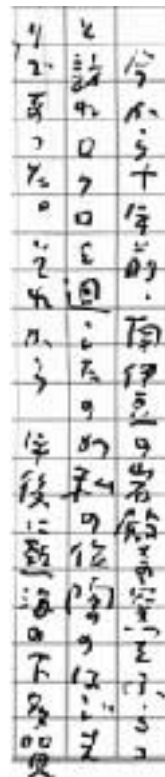 今から十年前、南伊豆の岩殿寺窯をふらっ
と訪れロクロを廻したのが私の作陶のはじま
りであった。それから 年後に熱海の下多賀